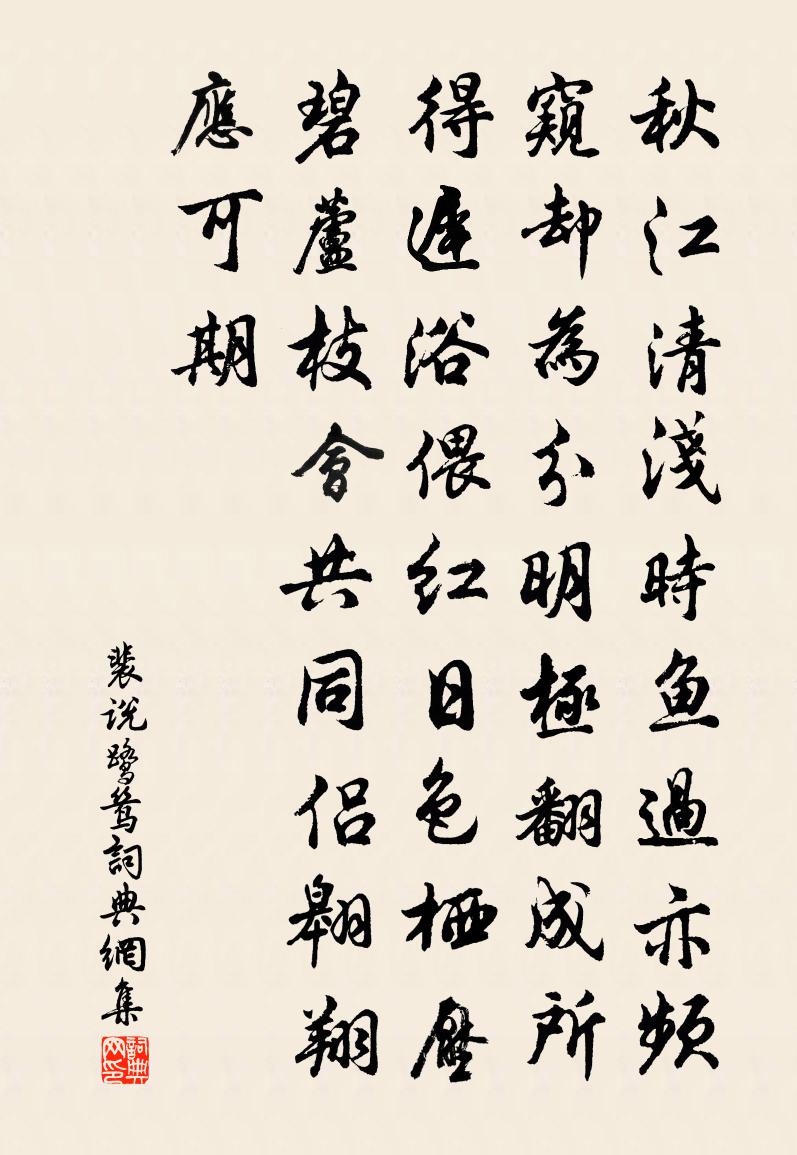 秋江清淺時魚過亦頻
窺却為分明極翻成所
得遲浴偎紅日色栖壓
碧蘆枝會共同侶翱翔
應可期
裴說鹭鸶詞典網集
詞典网印